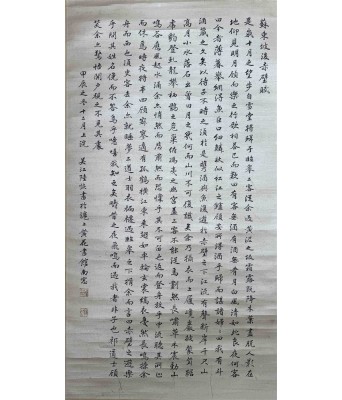 蘇東坡後赤壁賦
是歲十月之望步自雪堂將歸于臨皋二客從余過黃泥之坂霜露既降木葉盡脫人影在
地仰見明月顧而樂之行歌相答已而歎曰有客無酒有酒無肴月白風清如此良夜何客
曰今者薄暮舉網得魚巨口細鱗狀似松江之鱸顧安所得酒乎歸而謀諸婦婦曰我有斗
酒藏之久矣以待子不時之須於是攜酒與魚復遊於赤壁之下江流有聲斷岸千尺山
高月小水落石出曾日月之幾何而江山不可復識矣余乃攝衣而上履巉巖披蒙茸踞
虎豹登虬龍攀栖鶻之危巢俯馮夷之幽宮蓋二客不能從焉劃然長嘯草木震動山
鳴谷應風起水涌余亦悄然而悲肅然而恐凜乎其不可留也返而登舟放乎中流聽其所止
而休焉時夜將半四顧寂寥適有孤鶴橫江東來翅如車輪玄裳縞衣戛然長鳴掠余
舟而西也須臾客去余亦就睡夢二道士羽衣蹁躚過臨皋之下揖余而言曰赤壁之遊樂
乎問其姓名俛而不答嗚呼噫嘻我知之矣疇昔之夜飛鳴而過我者非子也耶道士顧
笑余亦驚悟開戶視之不見其處
甲辰之冬十二月上浣 吳江陸恢書於滬上黃花書館南窗